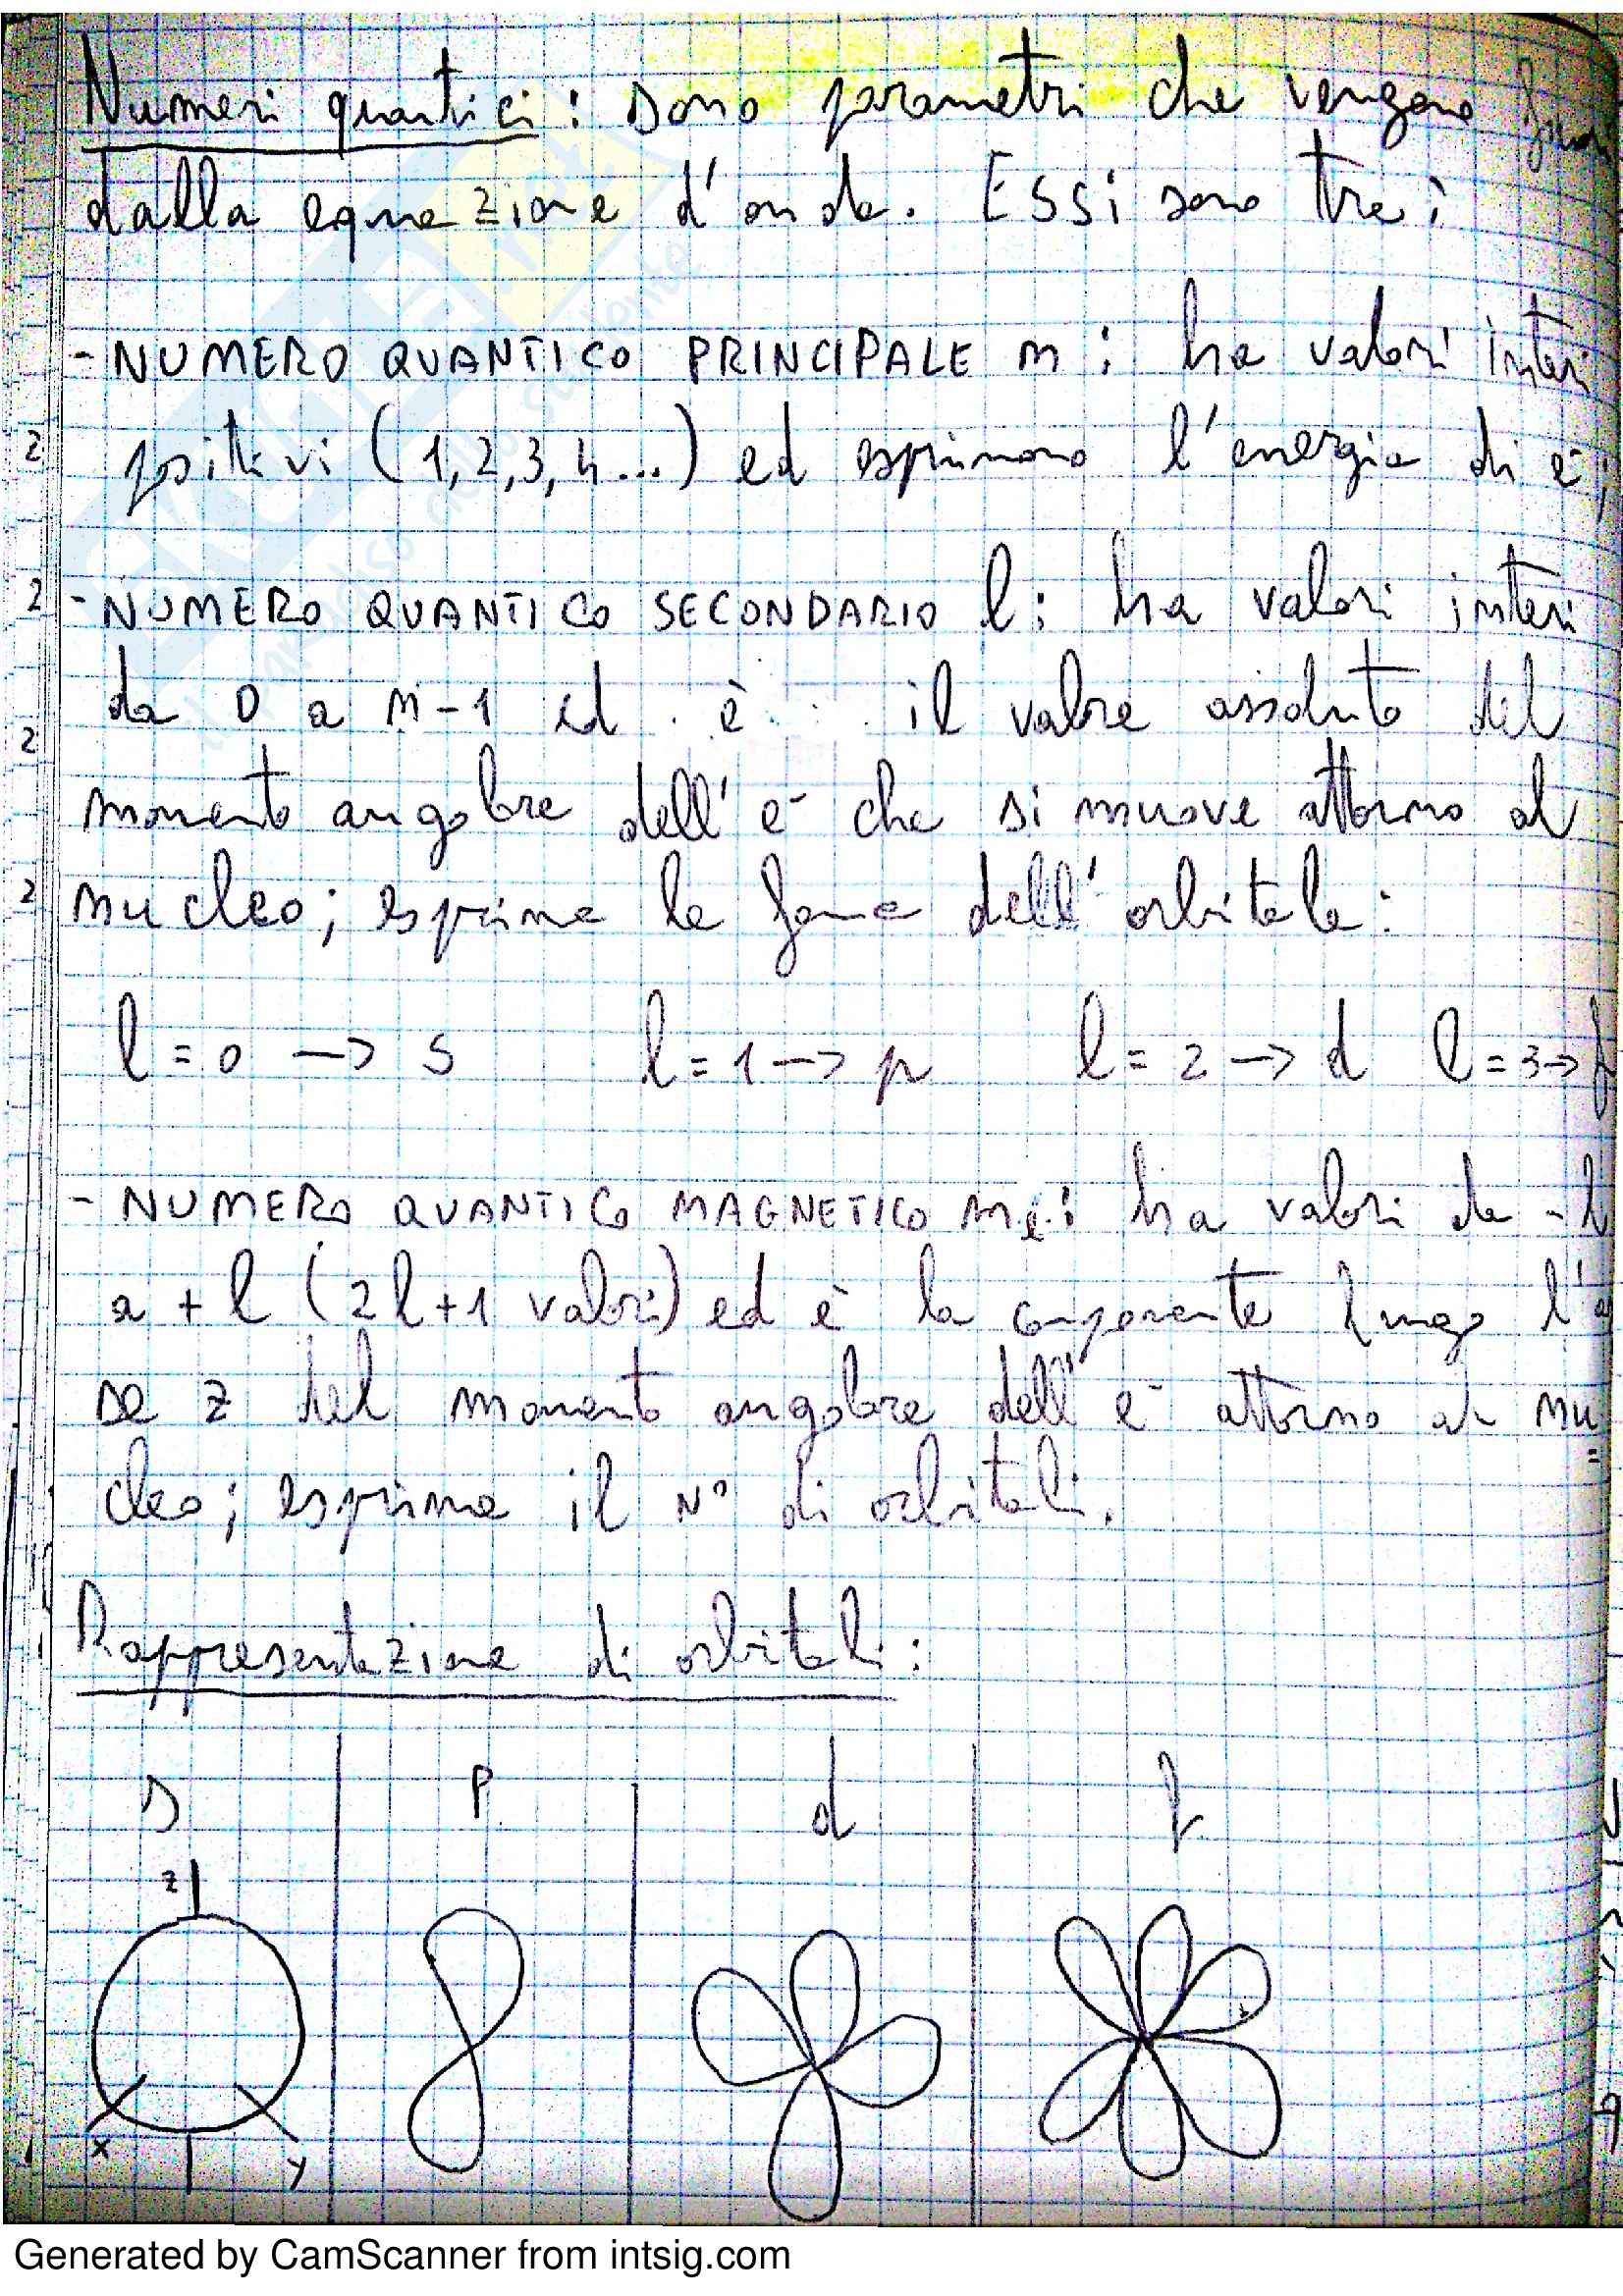 Numeri quantici: sono parametri che vengono fuori
dalla equazione d'onda. Essi sono tre:
- NUMERO QUANTICO PRINCIPALE n: ha valori interi
positivi (1,2,3,4...) ed esprimono l'energia di e⁻;
- NUMERO QUANTICO SECONDARIO l: ha valori interi
da 0 a n-1 ed è il valore assoluto del
momento angolare dell'e⁻ che si muove attorno al
nucleo; esprime la forma dell'orbitale:
l=0 → s l=1 → p l=2 → d l=3 → f
- NUMERO QUANTICO MAGNETICO mₗ: ha valori da -l
a +l (2l+1 valori) ed è la componente lungo l'a
se z del momento angolare dell'e⁻ attorno al nu
cleo; esprime il N° di orbitali.
Rappresentazione di orbitali:
s p d f
z
x y
Generated by CamScanner from intsig.com